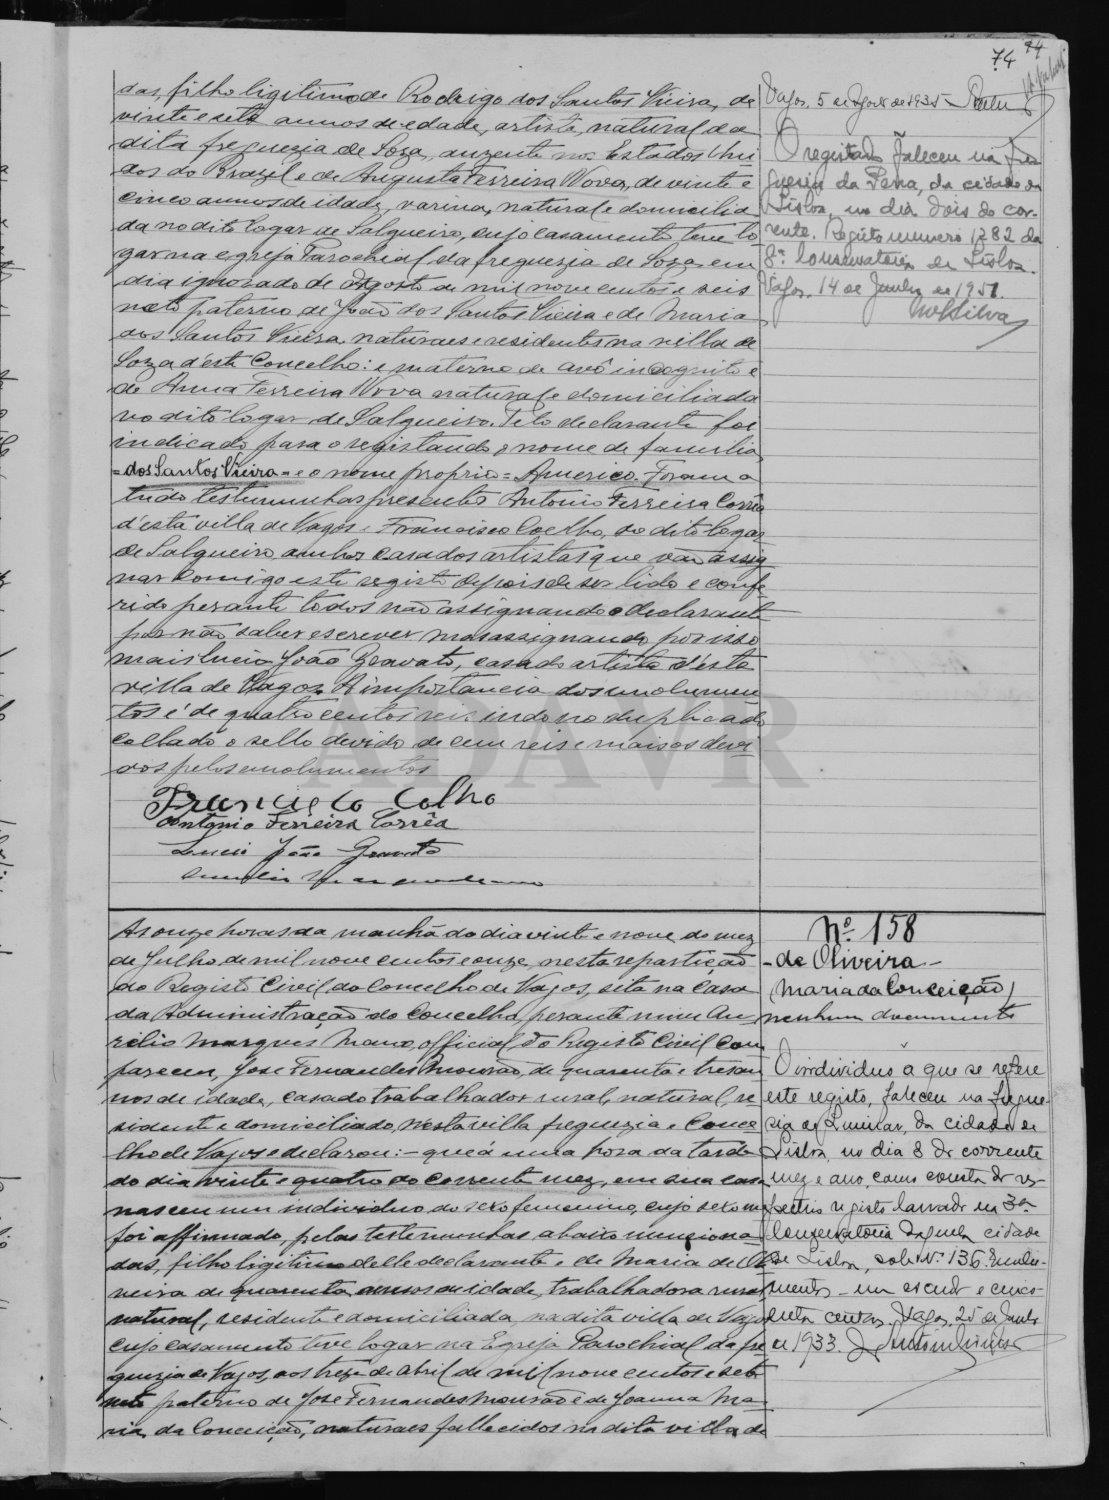 74 74
das, filho legitimo de Rodrigo dos Santos Vieira, de
vinte e sete annos de edade, artista, natural da
dita freguezia de Soza, auzente nos Estados Uni
dos do Brazil e de Augusta Ferreira Nova, de vinte e
cinco annos de idade, varina, natural e domicilia
da no dito logar de Salgueiro, cujo casamento teve lo
gar na egreja Parochial da freguezia de Soza em
dia ignorado de Agosto de mil nove centos e seis
neto paterno de João dos Santos Vieira e de Maria
dos Santos Vieira naturaes e residentes na villa de
Soza d'este Concelho: e materno de avô incognito e
de Anna Ferreira Nova natural e domiciliada
no dito logar de Salgueiro. Pelo declarante foi
indicado para o registando o nome de familia
= dos Santos Vieira = e o nome proprio = Americo. Foram a
tudo testemunhas presentes Antonio Ferreira Corrêa
d'esta villa de Vagos e Francisco Coelho, do dito logar
de Salgueiro ambos casados artistas que vão assig
nar comigo este registo depois de ser lido e confe
rido perante todos não assignando o declarante
por não saber escrever mas assignando por isso
mais Lucio João Gravato, casado artista d'esta
villa de Vagos. A importancia dos emolumen
tos é de quatro centos reis indo no duplicado
collado o sello devido de cem reis e mais os devi
dos pelos emolumentos
Francisco Colho
Antonio Ferreira Corrêa
Lucio João Gravato
Vagos, 5 de Agosto de 1935
O registado faleceu na fre
guesia da Pena, da cidade de
Lisboa, no dia dois do cor-
rente. Registo numero 1282 da
8ª Conservatoria de Lisboa.
Vagos, 14 de Junho de 1951.
As onze horas da manhã do dia vinte e nove do mez
de Julho de mil nove centos e onze, nesta repartição
do Registo Civil do Concelho de Vagos, sita na Casa
da Administração do Concelho, perante mim Au
relio Marques Mano, official do Registo Civil com
pareceu Jose Fernandes Mourão, de quarenta e tres an
nos de idade, casado trabalhador rural, natural, re
sidente e domiciliado, nesta villa freguezia e Conce
lho de Vagos e declarou: - que á uma hora da tarde
do dia vinte e quatro do corrente mez, em sua casa
nasceu um individuo do sexo femenino, cujo sexo me
foi affirmado, pelas testemunhas abaixo menciona-
das, filho legitimo delle declarante e de Maria de Oli
veira de quarenta annos de idade, trabalhadora rural,
natural, residente e domiciliada, na dita villa de Vagos
cujo casamento teve logar na Egreja Parochial da fre
guezia de Vagos, aos treze de abril de mil nove centos e sete
neto paterno de Jose Fernandes Mourão e de Joanna Ma
ria da Conceição, naturaes fallecidos na dita villa de
Nº 158
- de Oliveira -
(Maria da Conceição)
nenhum documento
O individuo a que se refere
este registo, faleceu na fregue-
sia do Lumiar, da cidade de
Lisboa, no dia 8 do corrente
mez e ano, como consta do res-
petivo registo lavrado na 3ª
Conservatoria daquela cidade
de Lisboa, sob o Nº 136. Emolu-
mentos - um escudo e cinco-
enta centavos. Vagos, 25 de Junho
de 1933.
ADAVR